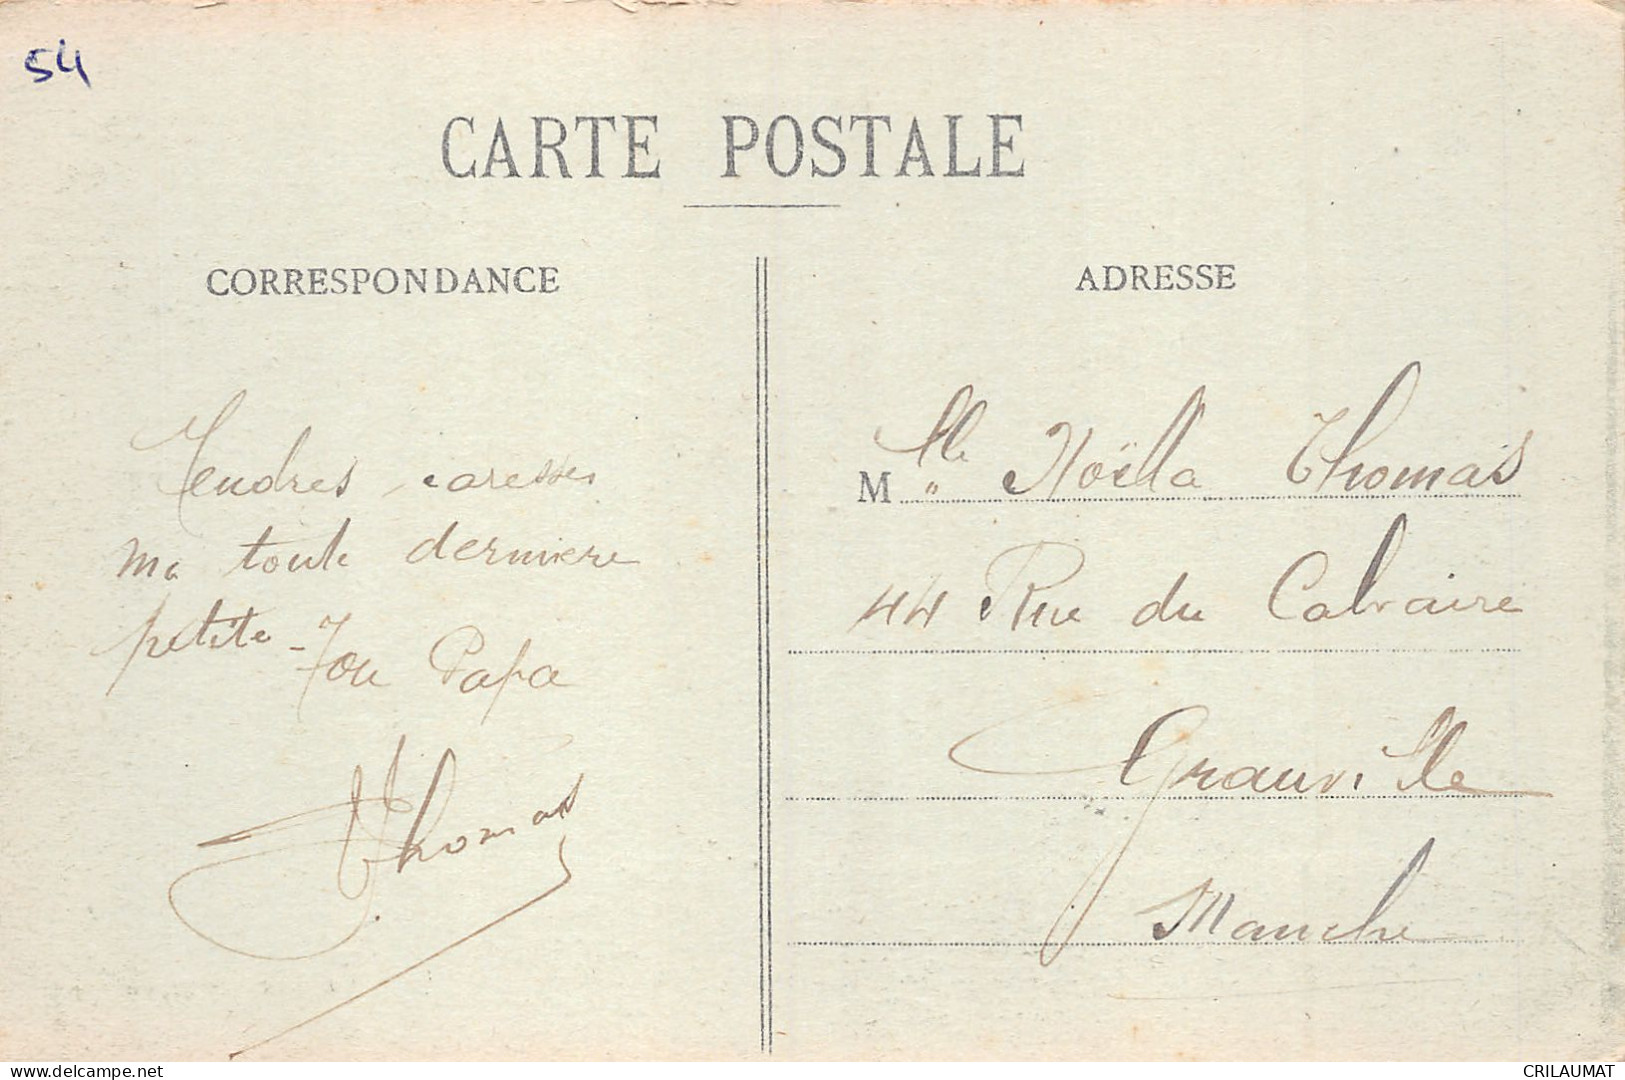 54
CARTE POSTALE
CORRESPONDANCE
ADRESSE
Tendres caresses
ma toute derniere
petite - Ton Papa
Thomas
Mlle Noëlla Thomas
44 Rue du Calvaire
Granville
Manche
delcampe.net
CRILAUMAT